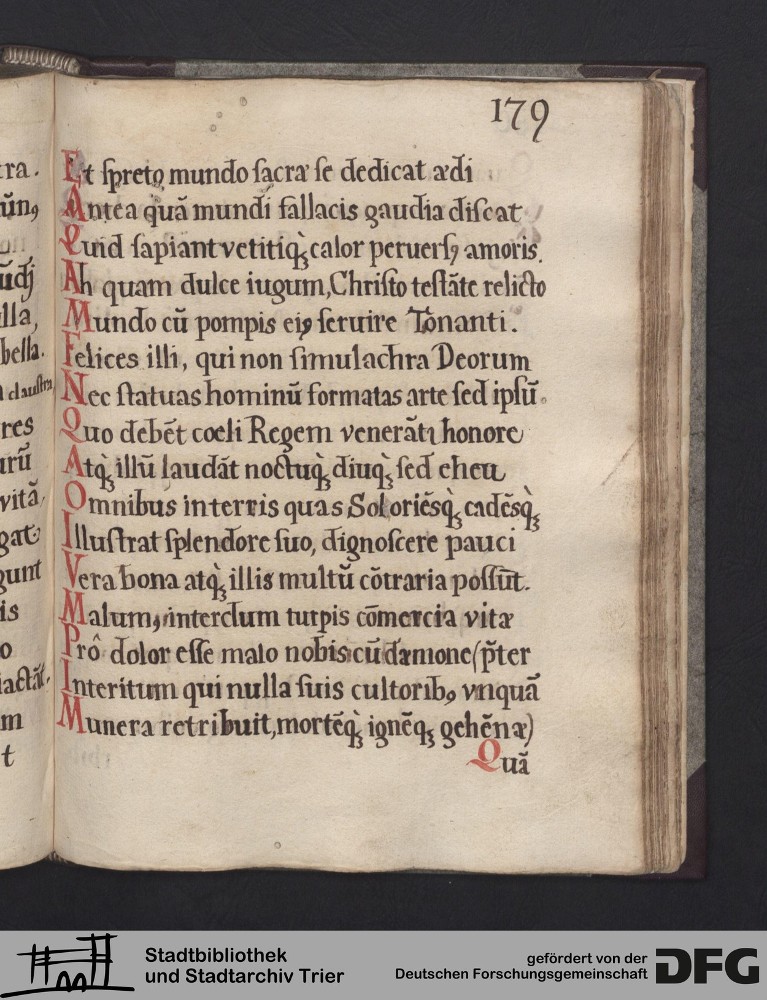 179
tra.
ũn,
udj
illa,
bella.
claustra
res
urũ
vitã,
gat
gunt
is
o
iactãt.
m
t
Et ſpreto mundo ſacræ ſe dedicat ædi
Antea quã mundi fallacis gaudia diſcat
Quid ſapiant vetitiq́ꝫ calor peruerſꝰ amoris.
Ah quam dulce iugum, Chriſto teſtãte relicto
Mundo cũ pompis eiꝰ ſeruire Tonanti.
Felices illi, qui non ſimulachra Deorum
Nec ſtatuas hominũ formatas arte ſed ipſũ.
Quo debẽt coeli Regem venerãti honore
Atq́ꝫ illũ laudãt noctuq́ꝫ diuq́ꝫ ſed eheu
Omnibus in terris quas Sol oriẽsq́ꝫ cadẽsq́ꝫ
Illuſtrat ſplendore ſuo, dignoſcere pauci
Vera bona atq́ꝫ illis multũ cõtraria poſſũt.
Malum, interdum turpis cõmercia vitæ
Prô dolor eſſe malo nobis cũ dæmone (p̃ter
Interitum qui nulla ſuis cultoribꝰ vnquã
Munera retribuit, mortẽq́ꝫ ignẽqꝫ gehẽnæ)
Quã
Stadtbibliothek
und Stadtarchiv Trier
gefördert von der
Deutschen Forschungsgemeinschaft
DFG